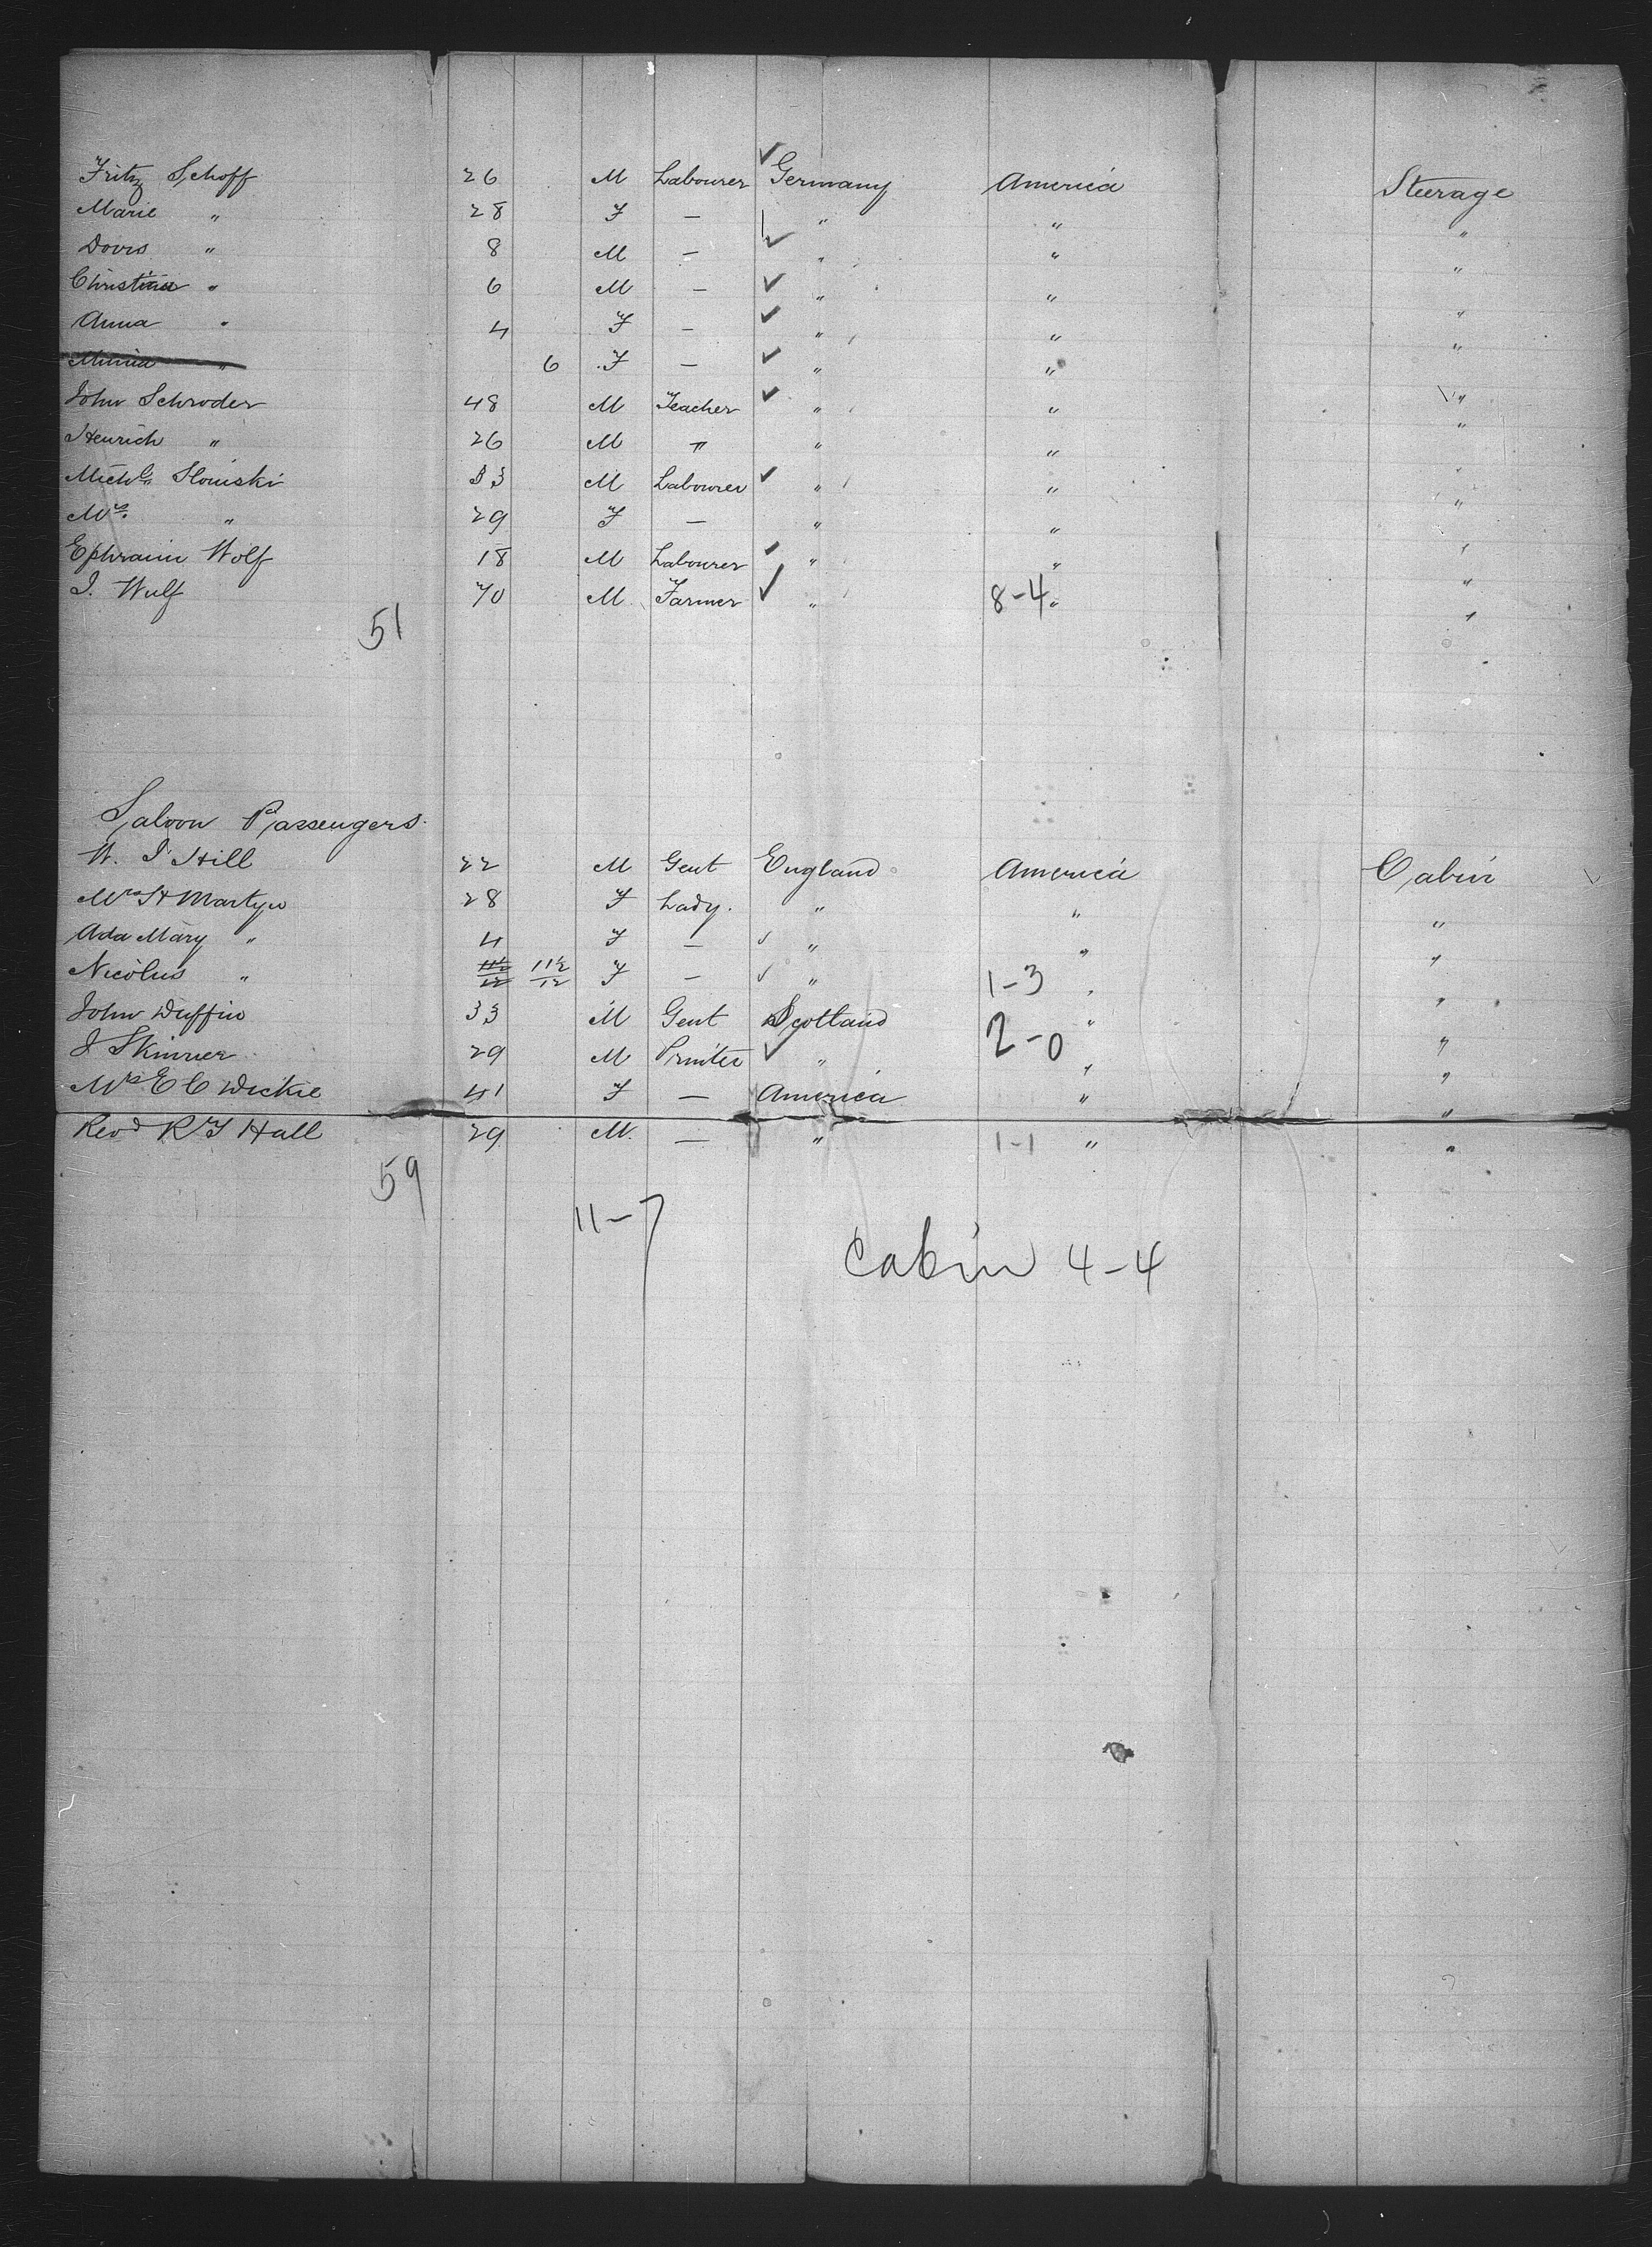 Fritz Schoff 26 M Labourer Germany America Steerage
Marie " 28 F — " " "
Doris " 8 M — " " "
Christian " 6 M — " " "
Anna " 4 F — " " "
Minna " 6 F — " " "
John Schroder 48 M Teacher " " "
Henrich " 26 M " " " "
Michl. Sloniski 33 M Labourer " " "
Mrs. " 29 F — " " "
Ephraim Wolf 18 M Labourer " " "
J. Wulf 70 M Farmer " 8-4 " "
51
Saloon Passengers.
W. J Hill 22 M Gent England America Cabin
Mrs H Martyn 28 F Lady. " " "
Ada Mary " 4 F — " " "
Nicolus " 11½/12 11½/12 F — " 1-3 " "
John Duffin 33 M Gent Scotland " "
J Skinner 29 M Printer " 2-0 " "
Mrs E C Dickie 41 F — America " "
Revd R T Hall 29 M. — " 1-1 " "
59
11-7
Cabin 4-4